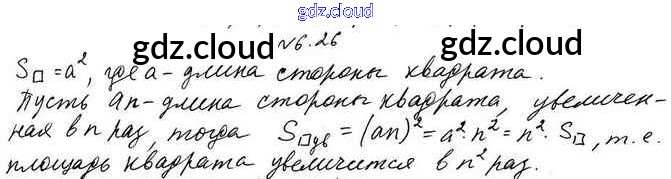 gdz.cloud
№6.26
gdz.cloud gdz.cloud
S□ = a², где a - длина стороны квадрата.
Пусть an - длина стороны квадрата, увеличен-
ная в n раз, тогда S□ув = (an)² = a²·n² = n²·S□, т.е.
площадь квадрата увеличится в n² раз.
gdz.cloud gdz.cloud